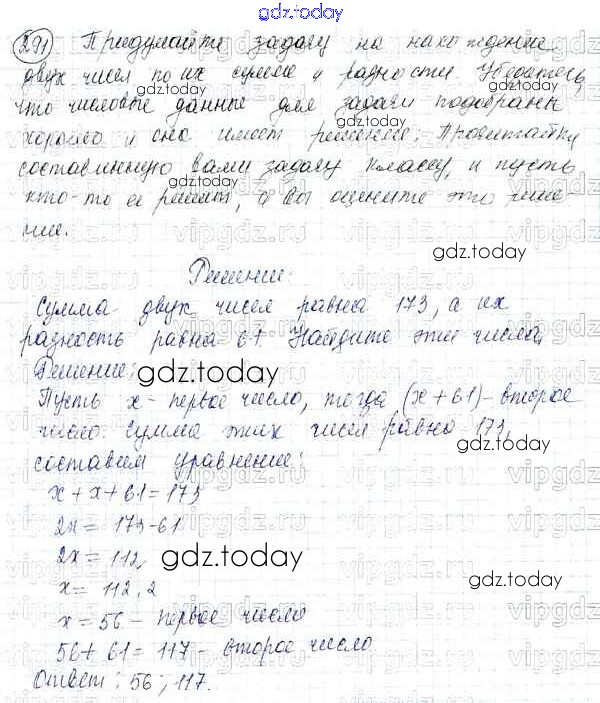 gdz.today
291 Придумайте задачу на нахождение
двух чисел по их сумме и разности. Убедитесь,
что числовые данные для задачи подобраны
хорошо и она имеет решение. Прочитайте
составленную вами задачу классу, и пусть
кто-то её решит, а вы оцените это реше-
ние.
Решение:
Сумма двух чисел равна 173, а их
разность равна 61. Найдите эти числа.
Решение:
Пусть x - первое число, тогда (x + 61) - второе
число. Сумма этих чисел равна 173,
составим уравнение:
x + x + 61 = 173
2x = 173-61
2x = 112
x = 112:2
x = 56 - первое число
56 + 61 = 117 - второе число
Ответ: 56; 117.